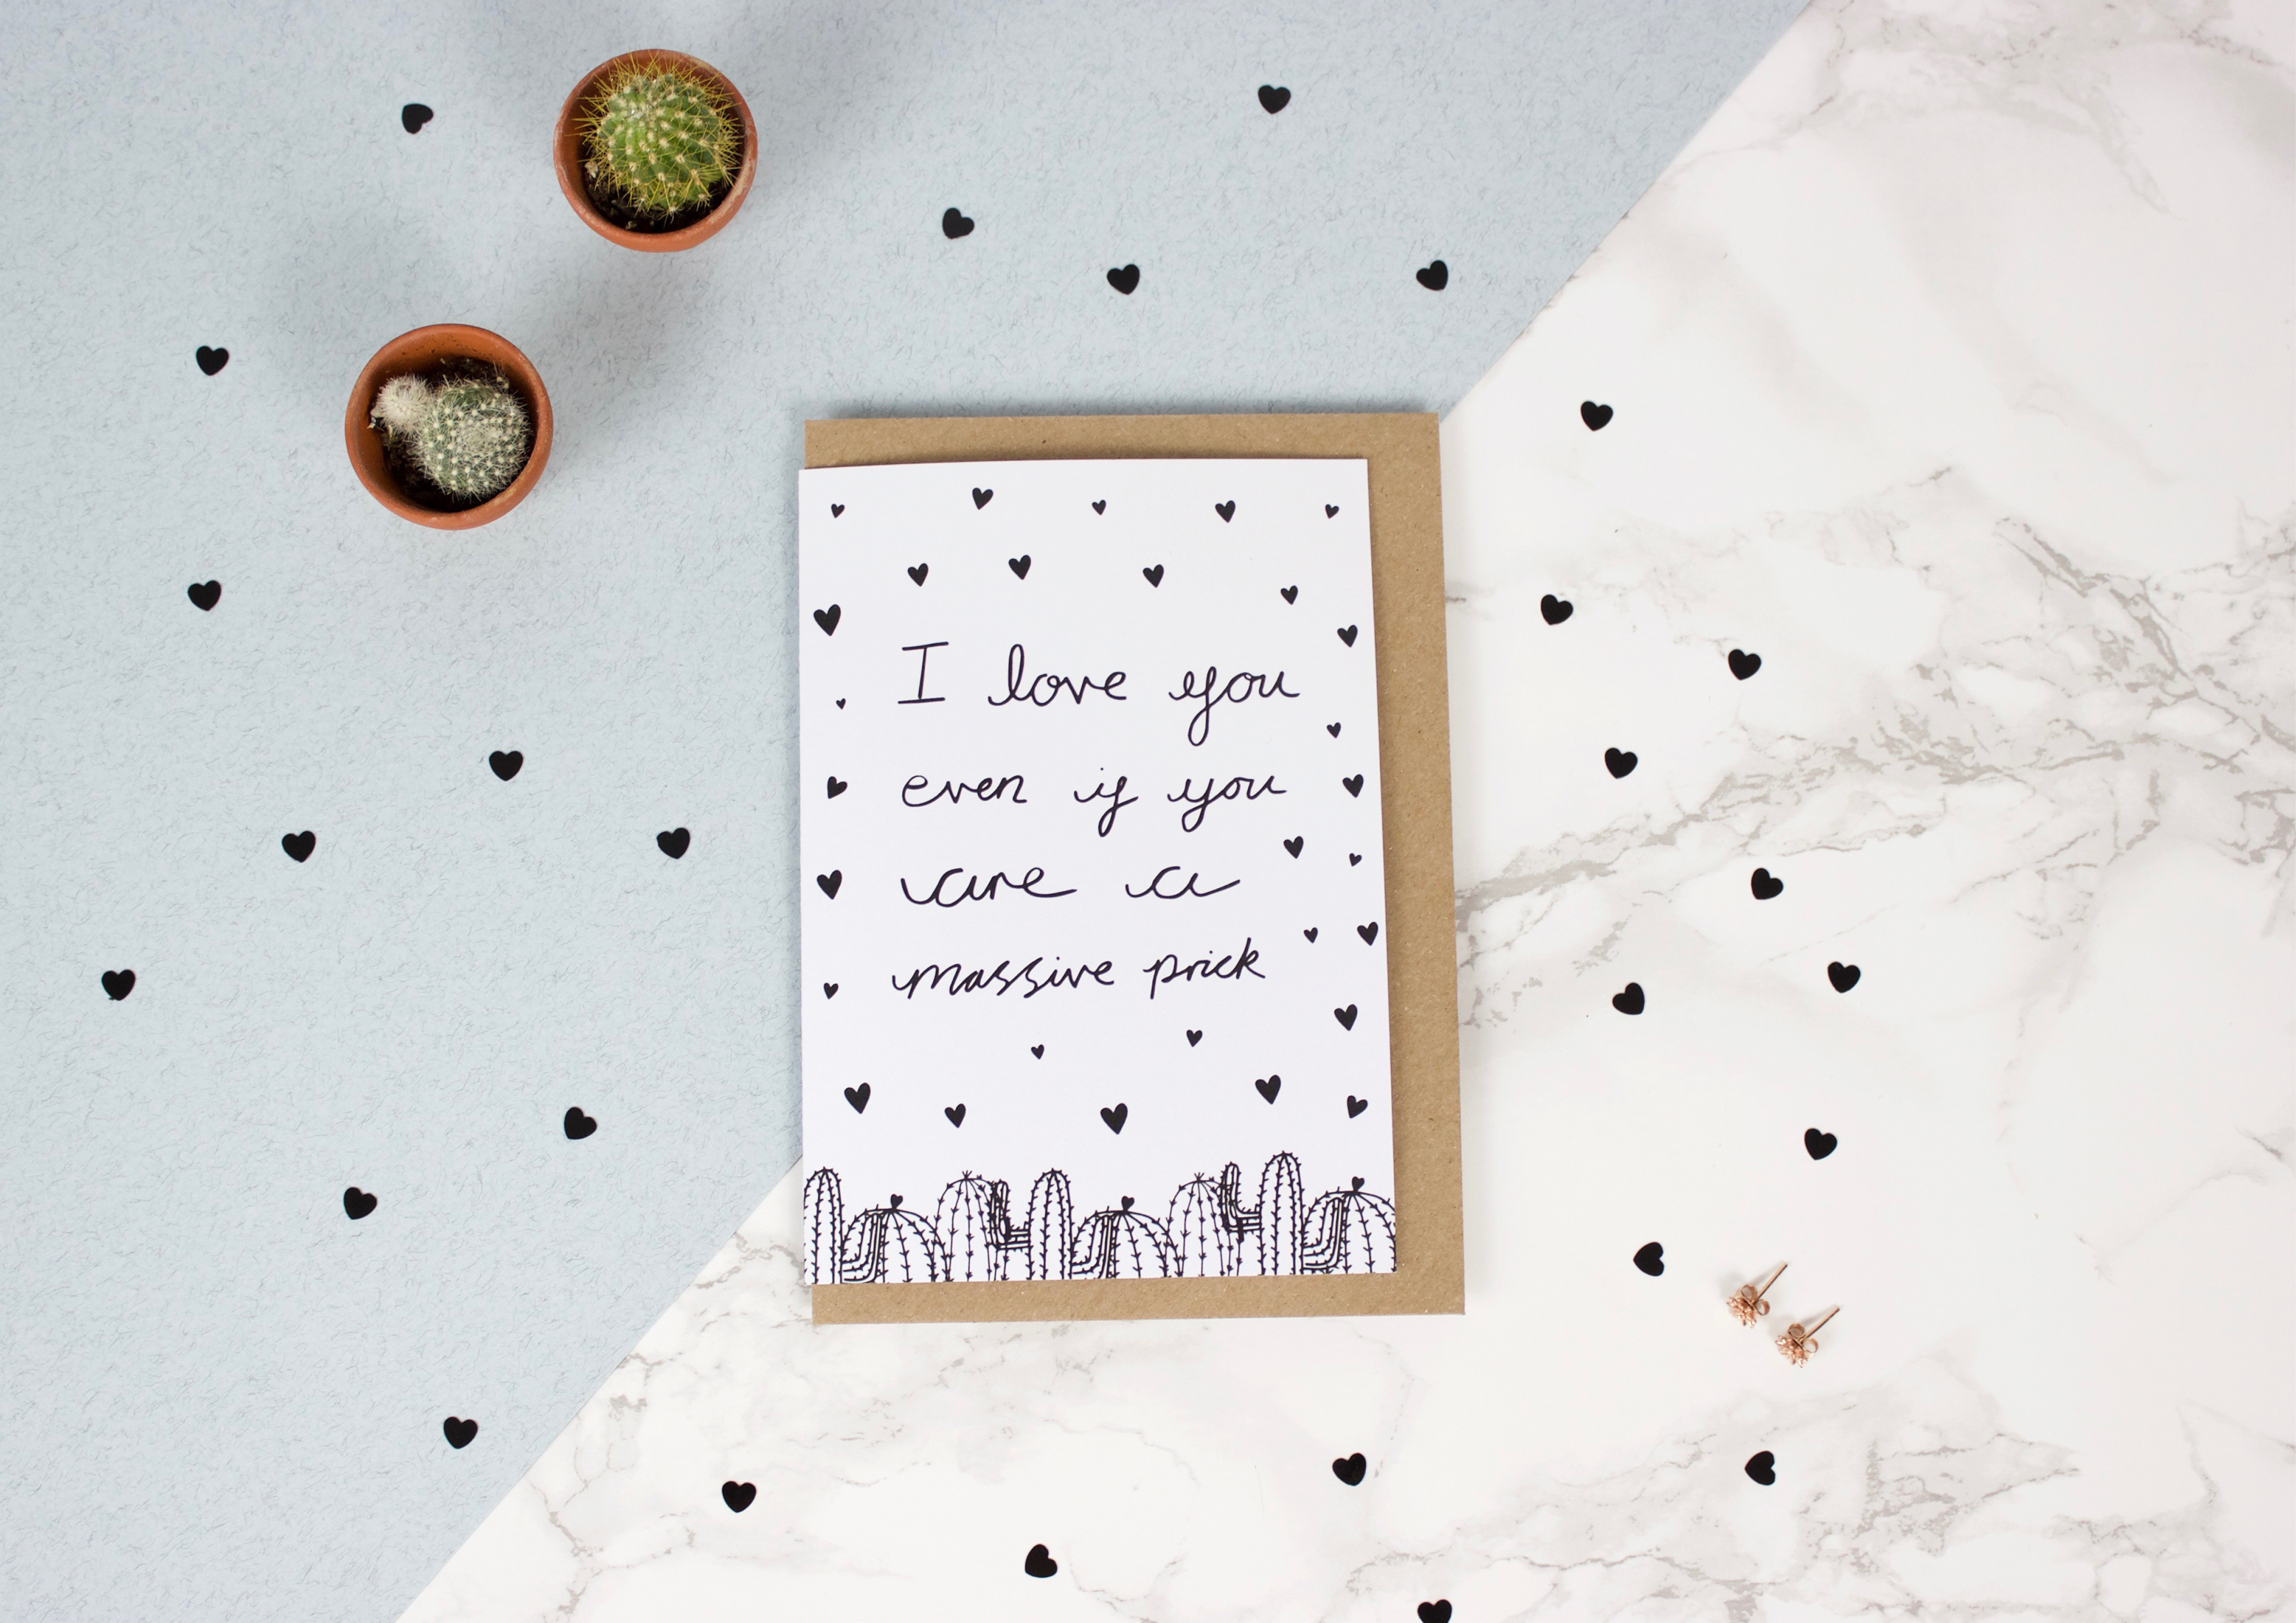 I love you
even if you
are a
massive prick